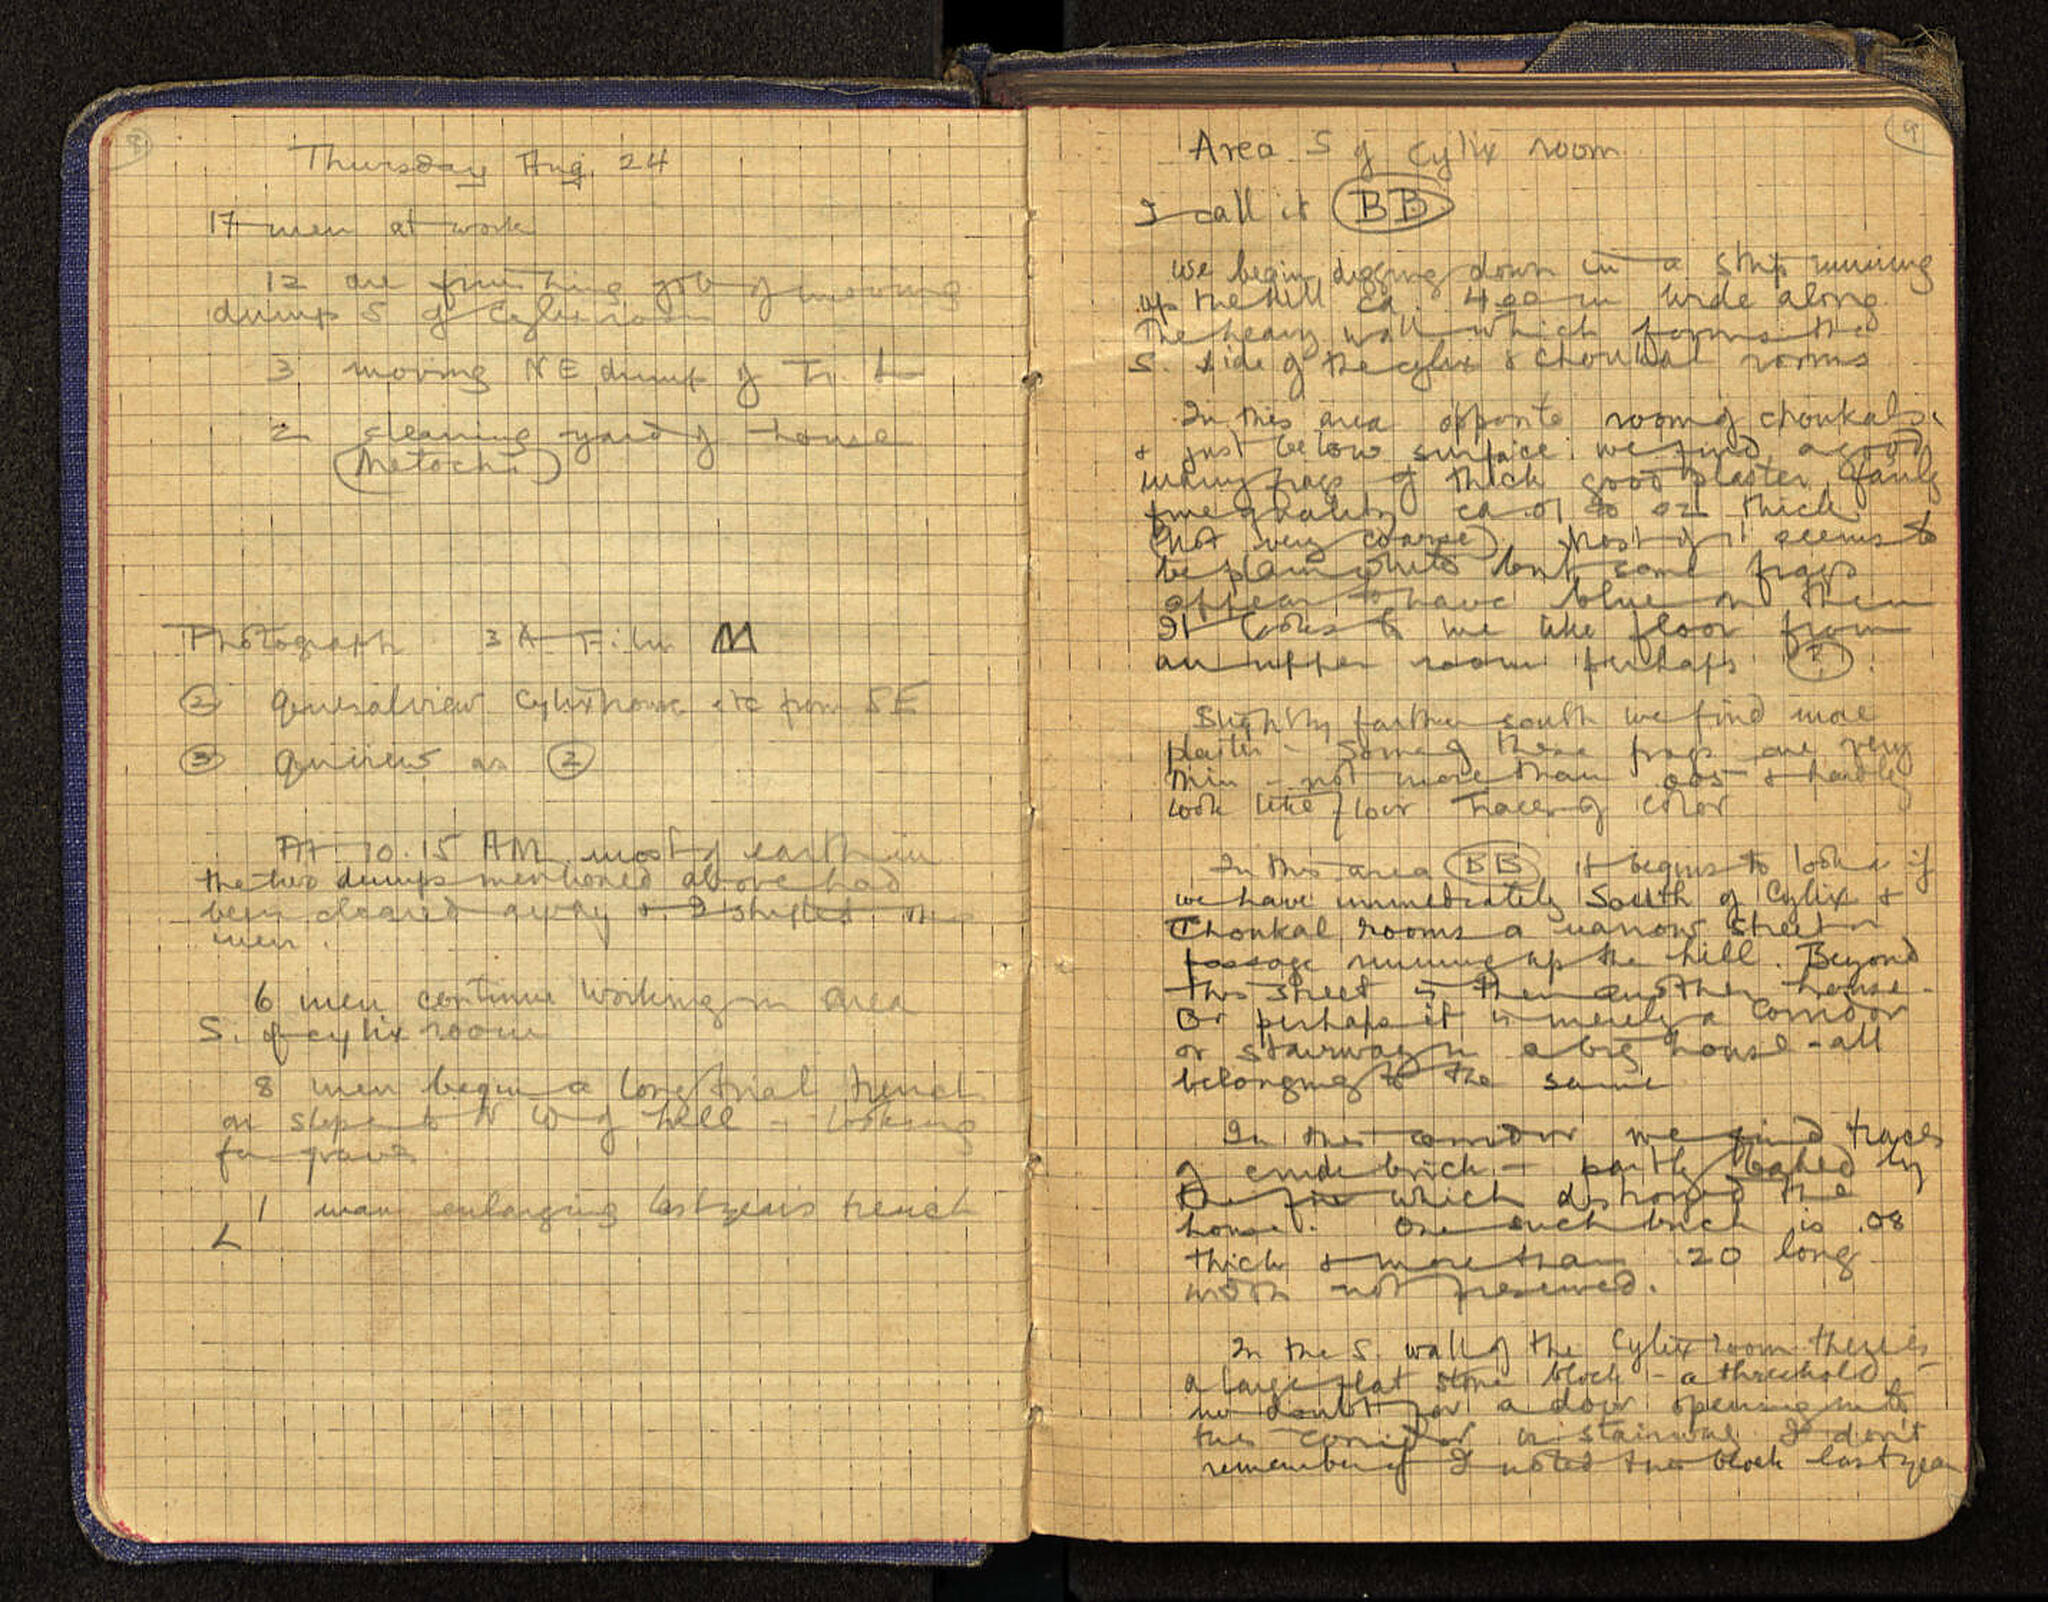 8
Thursday Aug. 24
17 men at work
12 are finishing job of moving
dump S of Cylix room
3 moving NE dump of Tr. L
2 cleaning yard of house
(Metochi)
Photograph 3A Film M
② General view Cylix house etc from SE
③ Gen view as ②
At 10.15 AM most of earth in
the two dumps mentioned above had
been cleared away & I shifted the
men.
6 men continue working in area
S. of cylix room
8 men begin a long trial trench
on slope to N W of hill - looking
for graves
1 man enlarging last year's trench
L
9
Area S of Cylix room
I call it BB
We begin digging down in a strip running
up the hill ca. 4.00 m wide along
the heavy wall which forms the
S. side of the cylix & choukal rooms
In this area opposite room of choukals
& just below surface we find a good
many frags of thick good plaster fairly
fine quality ca .01 to .02 thick
(not very coarse). Most of it seems to
be plain white but some frags
appear to have blue on them
It looks to me like floor from
an upper room perhaps (?).
Slightly farther south we find more
plaster - Some of these frags are very
thin - not more than .005 & hardly
look like floor Traces of color
In this area BB it begins to look as if
we have immediately South of Cylix &
Choukal rooms a narrow street or
passage running up the hill. Beyond
this street is then another house -
Or perhaps it is merely a corridor
or stairway in a big house - all
belonging to the same
In this corridor we find traces
of crude brick - partly baked by
the fire which destroyed the
house. One such brick is .08
thick & more than .20 long
width not preserved.
In the S. wall of the Cylix room there is
a large flat stone block - a threshold
no doubt for a door opening into
this corridor or stairway I don't
remember if I noted this block last year